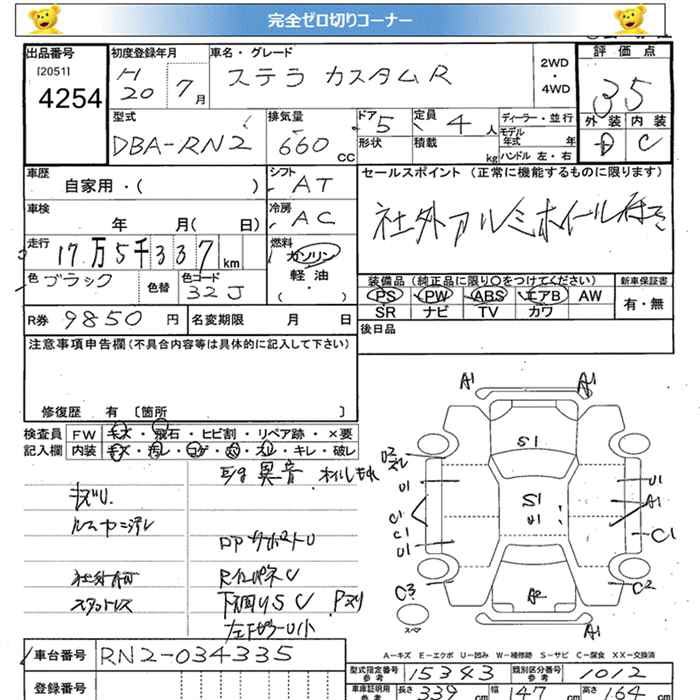 完全ゼロ切りコーナー
出品番号 初度登録年月 車名・グレード 評価点
[2051] 4254
H20 7月 ステラ カスタムR 2WD・4WD 3.5
型式 排気量 ドア 定員 ディーラー・並行 外装 内装
DBA-RN2 660CC 5 4人 モデル年式 年 D C
形状 積載 kg ハンドル 左・右
車歴 シフト セールスポイント (正常に機能するものに限ります)
自家用・( ) AT
社外アルミホイール付き
車検 冷房
年 月( 日) AC
走行 燃料
17万5千337km ガソリン
軽油
・( )
色 ブラック 色替 色コード 32J
装備品(純正品に限り〇をつけてください) 新車保証書
PS PW ABS エアB AW 有・無
SR ナビ TV カワ
R券 9850円 名変期限 月 日
後日品
注意事項申告欄(不具合内容等は具体的に記入して下さい)
修復歴 有 [箇所 ]
検査員 FW キズ・飛石・ヒビ割・リペア跡・×要
記入欄 内装 キズ・汚レ・コゲ・穴・スレ・キレ・破レ
E/g 異音 オイルもれ
キズU
ルームヤニ汚レ
社外
スタッドレス
下廻りSC Pスリ
A1 A1
S1
U2 スレ
U1 U1
S1 A1
U1
C1 C1
C1
U1
C3 C2
A2
スペア
A1
A-キズ E-エクボ U-凹み W-補修跡 S-サビ C-腐食 XX-交換済
車台番号 RN2-034335
型式指定番号 参考 15343 類別区分番号 参考 1012
登録番号
車庫証明用 参考 長さ 339cm 幅 147cm 高さ 164cm